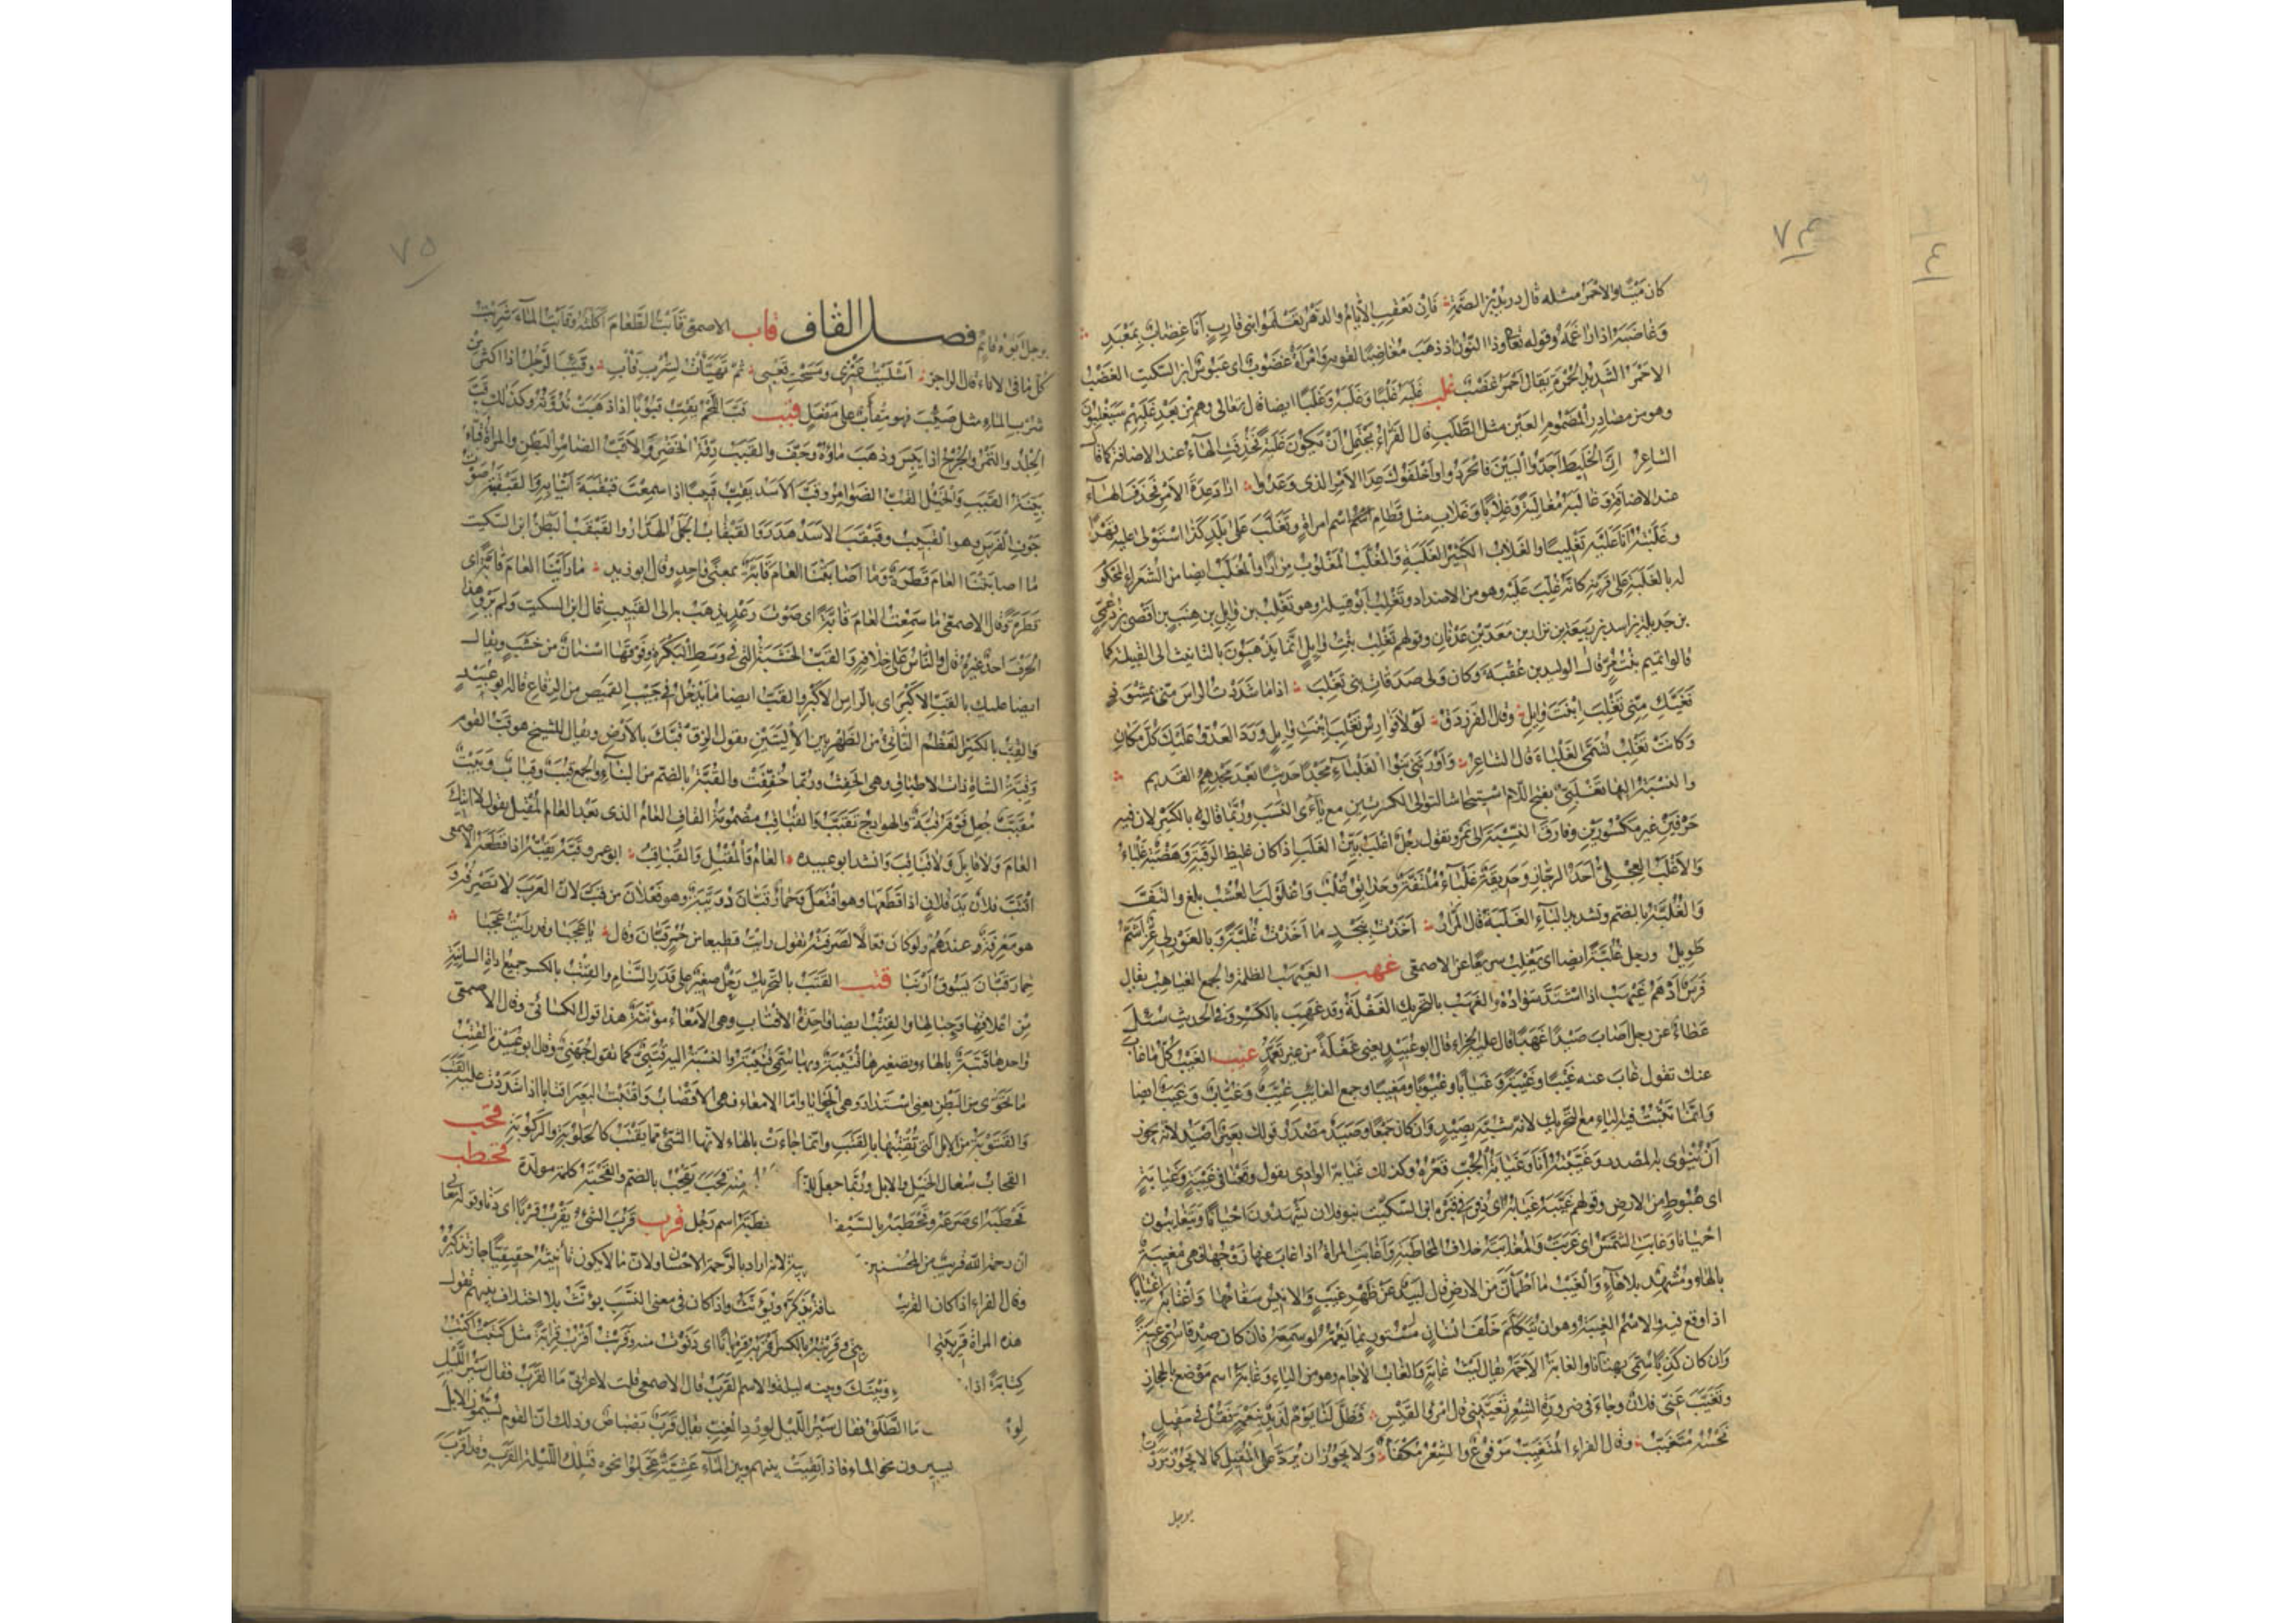 ٧٤
كان ميتا والاحمر مثله قال دريد بن الصمة فان تعقب الايام والدهر تعلموا بنى قارب انا غضاب بمعبد
وغاضبه اذا راغمه وقوله تعالى وذا النون اذ ذهب مغاضبا لقومه وامرأة غضوب اى عبوس ابن السكيت الغضب
الاحمر الشديد الحمرة يقال احمر غضب غلب غلبه غلبا وغلبة وغلبا ايضا قال تعالى وهم من بعد غلبهم سيغلبون
وهو من مصادر المضموم العين مثل الطلب قال الفراء يحتمل ان يكون غلبة فحذفت الهاء عند الاضافة كما قال
الشاعر ان الخليط اجدوا البين فانجردوا واخلفوك عدا الامر الذى وعدوا اراد عدة الامر فحذف الهاء
عند الاضافة وغالبه مغالبة وغلابا وغلاب مثل قطام اسم امراة وتغلب على بلد كذا استولى عليه قهرا
وغلبته انا عليه تغليبا والغلاب الكثير الغلبة والمغلب المغلوب مرارا والمغلب ايضا من الشعراء المحكوم
له بالغلبة على قرنه كانه غلب عليه وهو من الاضداد وتغلب ابو قبيلة وهو تغلب بن وايل بن هنب بن افصى بن دعمى
بن جديلة بن اسد بن ربيعة بن نزار بن معد بن عدنان وقولهم تغلب بنت وايل انما يذهبون بالتانيث الى القبيلة كما
قالوا تميم بنت مر قال الوليد بن عقبة وكان ولى صدقات بنى تغلب اذا ما شددت الراس منى بمشوذ
فغيك منى تغلب ابنة وايل وقال الفرزدق لولا فوارس تغلب ابنة وايل ورد العدو عليك كل مكان
وكانت تغلب تسمى الغلباء قال الشاعر واورثنى بنوا الغلباء مجدا حديثا بعد مجدهم القديم
والنسبة اليها تغلبى بفتح اللام استيحاشا لتوالى الكسرتين مع ياءى النسب وربما قالوه بالكسر لان فيه
حرفين غير مكسورين وفارق النسبة الى نمر وتقول رجل اغلب بين الغلب اذا كان غليظ الرقبة وهضبة غلباء
والاغلب العجلى احد الرجاز وحديقة غلباء ملتفة وحدايق غلب واغلولب العشب بلغ والتف
والغلبة بالضم وتشديد الباء الغلبة قال المرار اخذت بنجد ما اخذت غلبة وبالغور لى عز اشم
طويل ورجل غلبة ايضا اى يغلب سريعا عن الاصمعى غهب الغيهب الظلمة والجمع الغياهب يقال
فرس ادهم غيهب اذا اشتد سواده والغهب بالتحريك الغفلة وقد غهب بالكسر وفى الحديث سئل
عطاء عن رجل اصاب صيدا غهبا قال عليه الجزاء قال ابو عبيد يعنى غفلة من غير تعمد غيب الغيب كل ما غاب
عنك تقول غاب عنه غيبا وغيبة وغيابا وغيوبا ومغيبا وجمع الغائب غيب وغياب وغيب ايضا
وانما تثبت فيه الياء مع التحريك لانه شبه بصيد وان كان جمعا وصيد مصدر قولك بعير اصيد لانه يجوز
ان ينوى به المصدر وغيبته انا وغيابة الجب قعره وكذلك غيابة الوادى يقول وقعنا فى غيبة وغيابة
اى هبوط من الارض وقولهم غيبه غيابه اى دفن فى قبره ابن السكيت بنو فلان يشهدون احيانا ويتغايبون
احيانا وغابت الشمس اى غربت والمغايبة خلاف المخاطبة واغابت المراة اذا غاب عنها زوجها فهى مغيبة
بالهاء ومشهد بلا هاء والغيب ما اطمأن من الارض قال لبيد عن ظهر غيب والانيس سقامها واغتابه اغتيابا
اذا وقع فيه والاسم الغيبة وهو ان يتكلم خلف انسان مستور بما يغمه لو سمعه فان كان صدقا سمى غيبة
وان كان كذبا سمى بهتانا والغابة الاجمة يقال ليث غابة والغاب الاجام وهو من الياء وغابة اسم موضع بالحجاز
وتغيب عنى فلان وجاء فى ضرورة الشعر تغيبنى قال امرؤ القيس فظل لنا يوم لذيذ بنعمة فقل فى مقيل
نحسه متغيب وقال الفراء المتغيب مرفوع والشعر مكفأ ولا يجوز ان يرد على المقيل كما لا يجوز مررت
برجل
٧٥
برجل ابوه قايم فصل القاف قاب الاصمعى قابت الطعام اكلته وقابت الماء شربت
كل ما فى الاناء قال الراجز اشليت عنزى ومسحت قعبى ثم تهيأت لشرب قأب وقئب الرجل اذا اكثر من
شرب الماء مثل صئب فهو مقأب على مفعل قبب قب اللحم يقب قبوبا اذا ذهبت ندوته وكذلك قب
الجلد والتمر والجرح اذا يبس وذهب ماؤه وجف والقبب دقة الخصر والاقب الضامر البطن والمراة قباء
بينة القبب والخيل القب الضوامر وقب الاسد يقب قبيبا اذا سمعت قبقبة انيابه والقبقبة صوت
جوف الفرس وهو القبيب وقبقب الاسد هدر والقبقاب الجمل الهدار والقبقب البطن ابن السكيت
ما اصابتنا العام قطرة وما اصابتنا العام قابة بمعنى واحد وقال ابو زيد ما راينا العام قابة اى
قطرة وقال الاصمعى ما سمعنا العام قابة اى صوت رعد يذهب به الى القبيب قال ابن السكيت ولم يرو هذا
الحرف احد غيره قال والناس على خلافه والقب الخشبة التى فى وسط البكرة وفوقها اسنان من خشب ويقال
ايضا عليك بالقب الاكبر اى بالراس الاكبر والقب ايضا ما يدخل فى جيب القميص من الرقاع قاله ابو عبيد
والقب بالكسر العظم الناتئ من الظهر بين الاليتين يقول الزق قبك بالارض ويقال للشيخ هو قب القوم
وقبة الشاة ذات الاطباق وهى الحفث وربما خففت والقبة بالضم من البناء والجمع قبب وقباب وبيت
مقبب جعل فوقه قبة والهوادج تقبب والقباقب مضمومة القاف العام الذى بعد العام المقبل يقول لا اتيك
العام ولا قابل ولا قباقب وانشد ابو عبيدة العام والمقبل والقباقب ابو عمرو قبه يقبه اذا قطعه الاصمعى
اقتب فلان يد فلان اذا قطعها وهو افتعل وحمار قبان دويبة وهو فعلان من قب لان العرب لا تصرفه و
هو معرفة عندهم ولو كان فعالا لصرفته تقول رايت قطيعا من حمر قبان وقال يا عجبا وقد رايت عجبا
حمار قبان يسوق ارنبا قتب القتب بالتحريك رحل صغير على قدر السنام والقتب بالكسر جميع اداة السانية
من اعلاقها وحبالها والقتب ايضا واحدة الاقتاب وهى الامعاء مؤنثة هذا قول الكسائى وقال الاصمعى
واحدها قتبة بالهاء وتصغيرها قتيبة وبها سمى قتيبة والنسبة اليه قتبى كما تقول جهنى وقال ابو عبيدة القتب
ما تحوى من البطن يعنى استدار وهى الحوايا واما الامعاء فهى الاقصاب واقتبت البعير اقتابا اذا شددت عليه القتب
والقتوبة من الابل التى تقتبها بالقتب وانما جاءت بالهاء لانها الشئ مما يقتب كالحلوبة والركوبة قحب
القحاب سعال الخيل والابل وربما جعل للنا منه قحب يقحب بالضم والقحبة كلمة مولدة قحطب
قحطبه اى صرعه وقحطبه بالسيف قحطبة اسم رجل قرب قرب الشئ يقرب قربا اى دنا وقوله تعالى
ان رحمة الله قريب من المحسنين لانه اراد بالرحمة الاحسان ولان ما لا يكون تأنيثه حقيقيا جاز تذكيره
وقال الفراء اذا كان القريب مسافة يذكر ويؤنث واذا كان فى معنى النسب يؤنث بلا اختلاف بينهم تقول
هذه المراة قريبتى وقربته بالكسر اقربه قربانا اى دنوت منه وقربت اقرب قرابة مثل كتبت اكتب
كتابة اذا وبينك وبينه ليلة والاسم القرب قال الاصمعى قلت لاعرابى ما القرب فقال سير الليل
لورد ما الطلق فقال سير الليل لورد الغب يقال قرب بصباص وذلك ان القوم يسيمون الابل
يسيرون نحو الماء فاذا بقيت بينهم وبين الماء عشية عجلوا نحوه فتلك الليلة القرب وقد اقرب